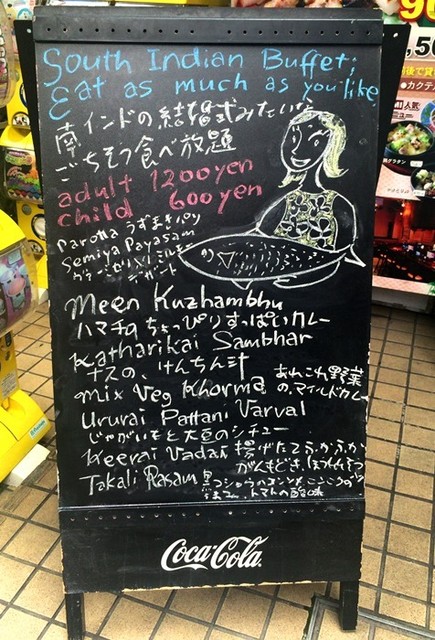 South Indian Buffet;
Eat as much as you like.
南インドの結婚式みたいな
ごちそう食べ放題
adult 1200yen
child 600yen
Parotta うずまきパン
Semiya Payasam
デザート
Meen Kuzhambhu
ハマチのちょっぴりすっぱいカレー
Katharikai Sambhar
ナスの、けんちん汁
Mix Veg Khorma あれこれ野菜
の、マイルドカレー
Ururai Pattani Varval
じゃがいもと大豆のシチュー
Keerai Vadai 揚げたてふかふか
がんもどき、ほうれんそう
Takali Rasam
トマトの酸味
Coca-Cola